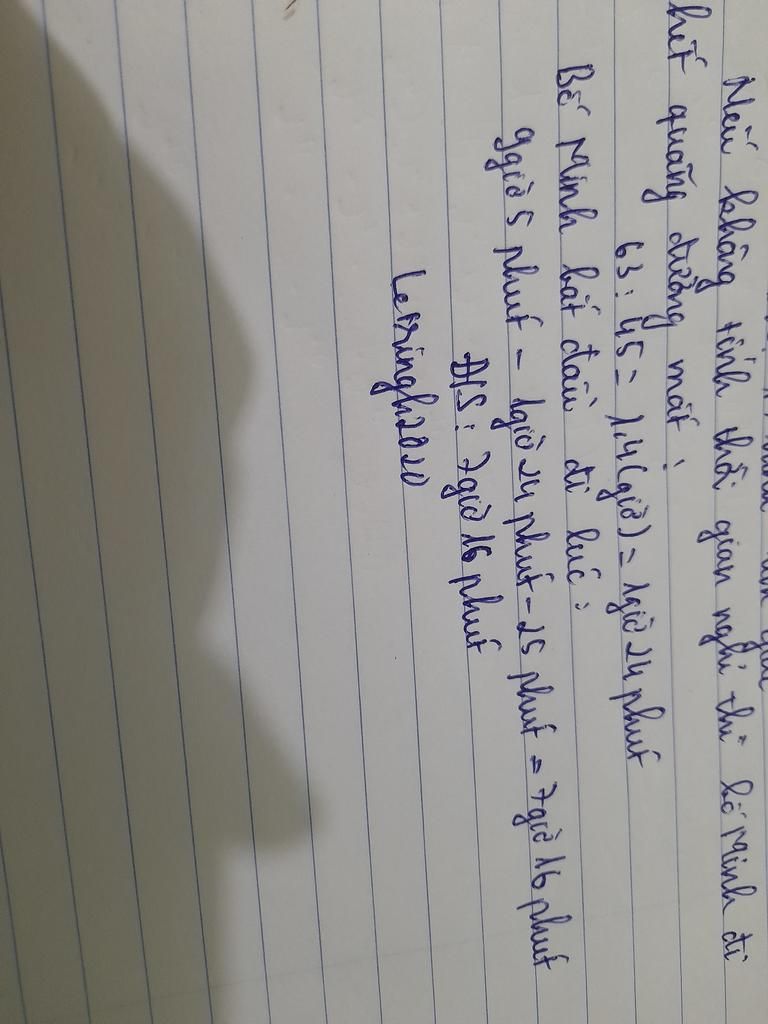 Nếu không tính thời gian nghỉ thì bố Minh đi
hết quãng đường mất:
63: 45 = 1,4(giờ) = 1giờ 24 phút
Bố Minh bắt đầu đi lúc:
9giờ 5 phút - 1giờ 24 phút - 25 phút = 7giờ 16 phút
Đ/S: 7giờ 16 phút
Letringh2020